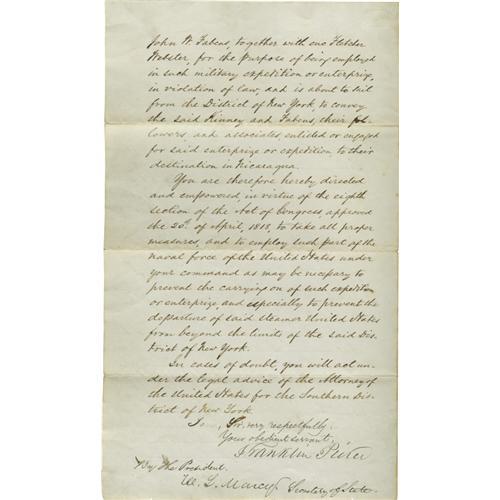 John W. Fabens, together with one Fletcher
Webster, for the purpose of being employed
in such military expedition or enterprize,
in violation of law, and is about to sail
from the District of New York, to convey
the said Kinney and Fabens, their fol-
lowers and associates enlisted or engaged
for said enterprize or expedition, to their
destination in Nicaragua.
You are therefore hereby directed
and empowered, in virtue of the eighth
section of the Act of Congress, approved
the 20th of April, 1818, to take all proper
measures, and to employ such part of the
naval force of the United States under
your command as may be necessary to
prevent the carrying on of such expedition
or enterprize, and especially to prevent the
departure of said steamer United States
from beyond the limits of the said Dis-
trict of New York.
In cases of doubt, you will act un-
der the legal advice of the Attorney of
the United States for the Southern Dis-
trict of New York.
I am, Sir, very respectfully,
Your obedient servant,
Franklin Pierce
By the President.
W. L. Marcy, Secretary of State